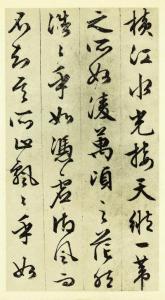 橫江水光接天縱一葦
之所如凌萬頃之茫然
浩〻乎如憑虛御風而
不知其所止飄〻乎如